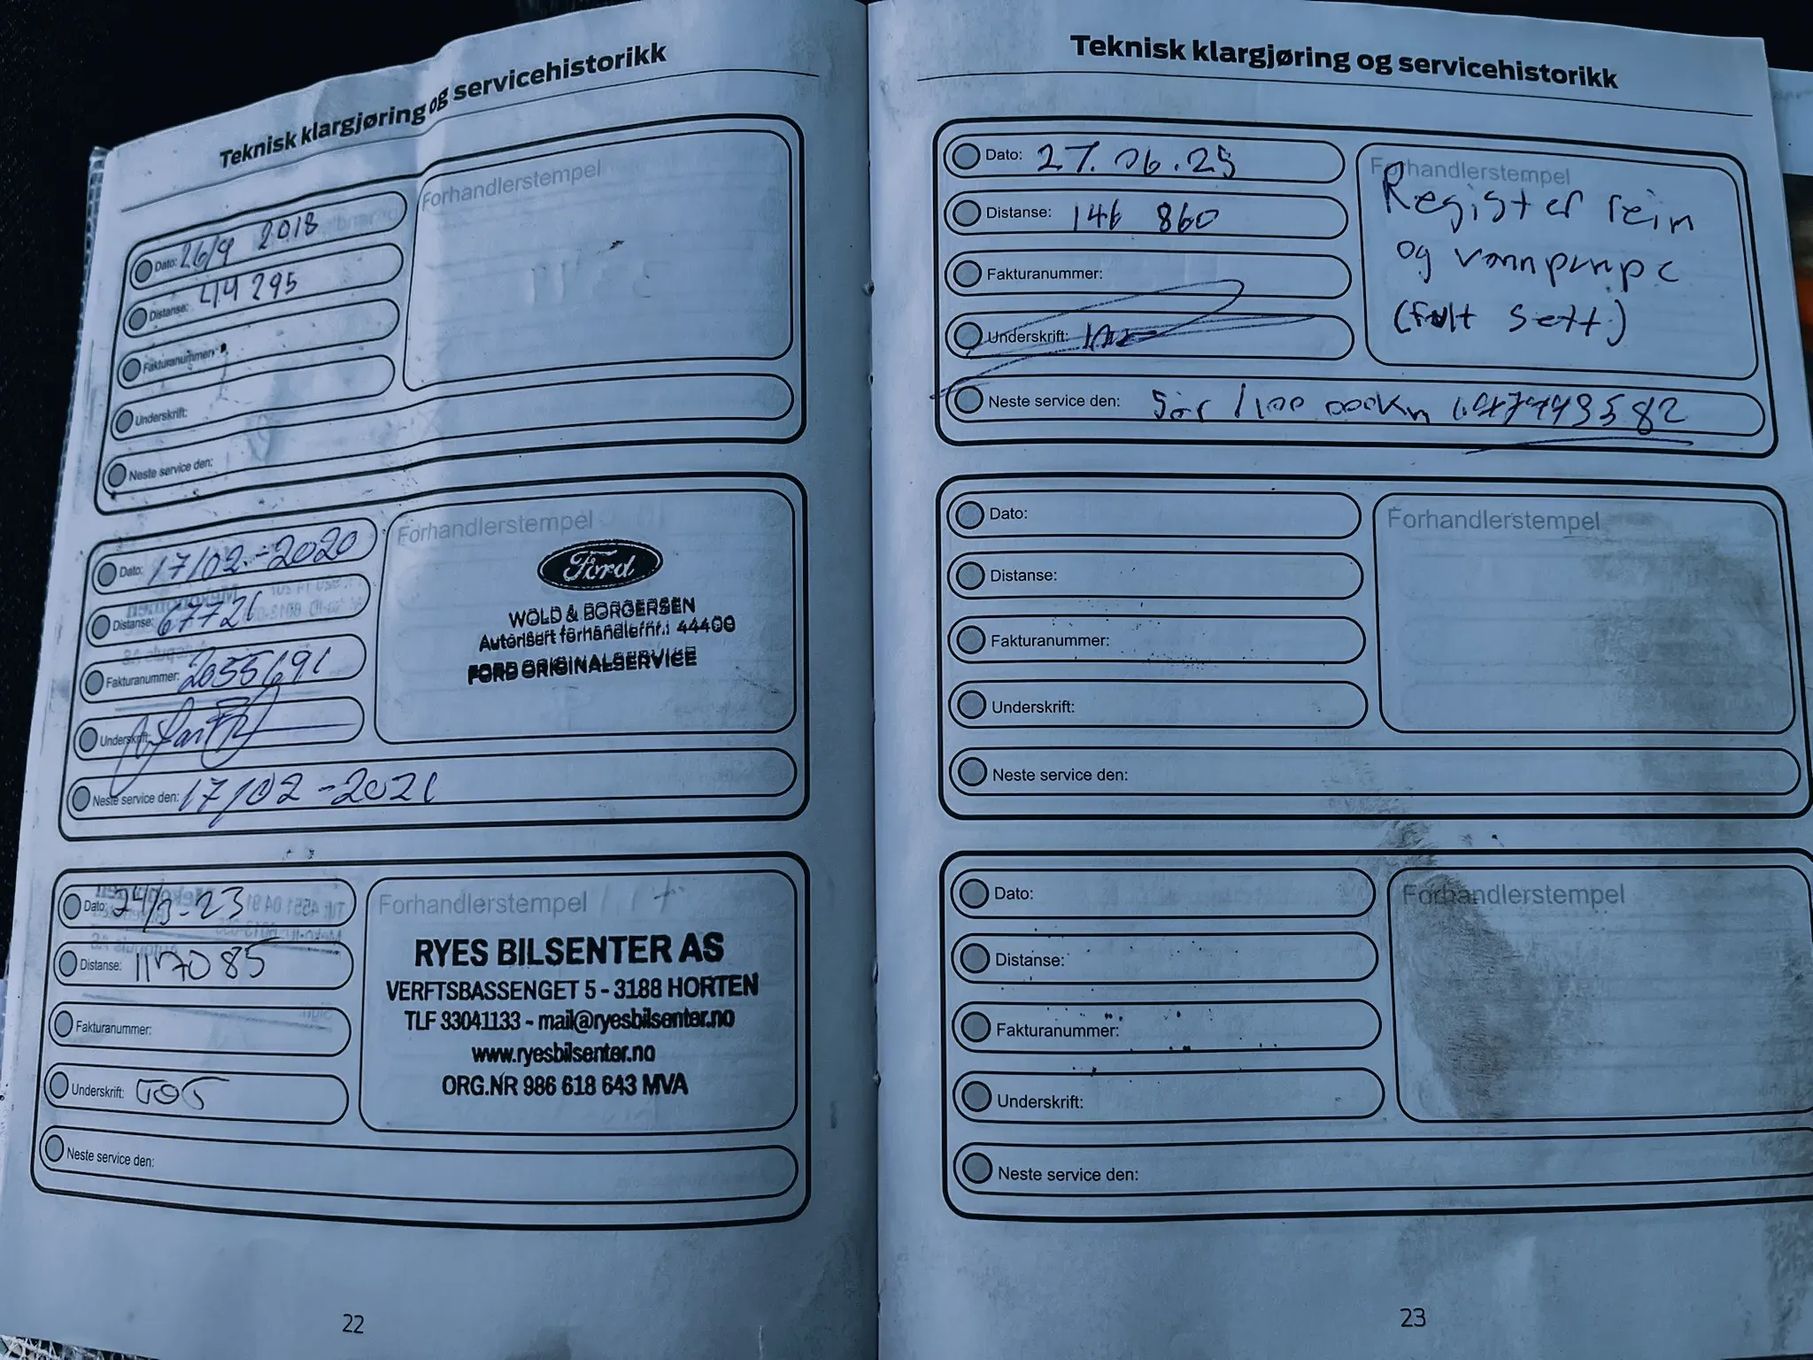 Teknisk klargjøring og servicehistorikk
Dato: 26/9 2018
Distanse: 44 295
Fakturanummer:
Underskrift:
Neste service den:
Forhandlerstempel
Dato: 17/02-2020
Distanse: 67721
Fakturanummer: 2055191
Underskrift:
Neste service den: 17/02-2021
Forhandlerstempel
Ford
WOLD & BORGERSEN
Autorisert forhandlernr.: 44400
FORD ORIGINALSERVICE
Dato: 24/3-23
Distanse: 117085
Fakturanummer:
Underskrift:
Neste service den:
Forhandlerstempel
RYES BILSENTER AS
VERFTSBASSENGET 5 - 3188 HORTEN
TLF 33041133 - mail@ryesbilsenter.no
www.ryesbilsenter.no
ORG.NR 986 618 643 MVA
22
Teknisk klargjøring og servicehistorikk
Dato: 27.06.25
Distanse: 146 860
Fakturanummer:
Underskrift:
Neste service den: 5år / 100 000km
Forhandlerstempel
Register reim
og vannpumpe
(fult sett)
Dato:
Distanse:
Fakturanummer:
Underskrift:
Neste service den:
Forhandlerstempel
Dato:
Distanse:
Fakturanummer:
Underskrift:
Neste service den:
Forhandlerstempel
23